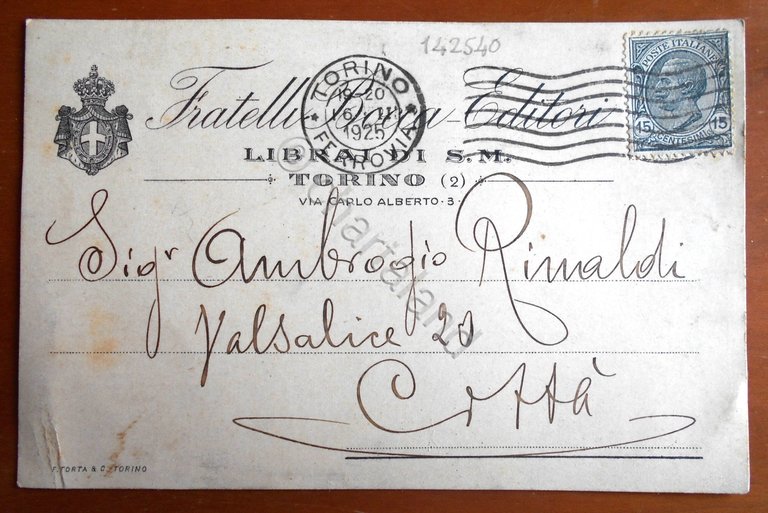 142540
POSTE ITALIANE
15 CENTESIMI 15
TORINO
19-20
6
1925
FERROVIA
Fratelli Bocca - Editori
LIBRAI DI S.M.
TORINO (2)
VIA CARLO ALBERTO · 3 ·
Sigr Ambrogio Rinaldi
Valsalice 20
Città
F. TORTA & C. TORINO
© Cartaland